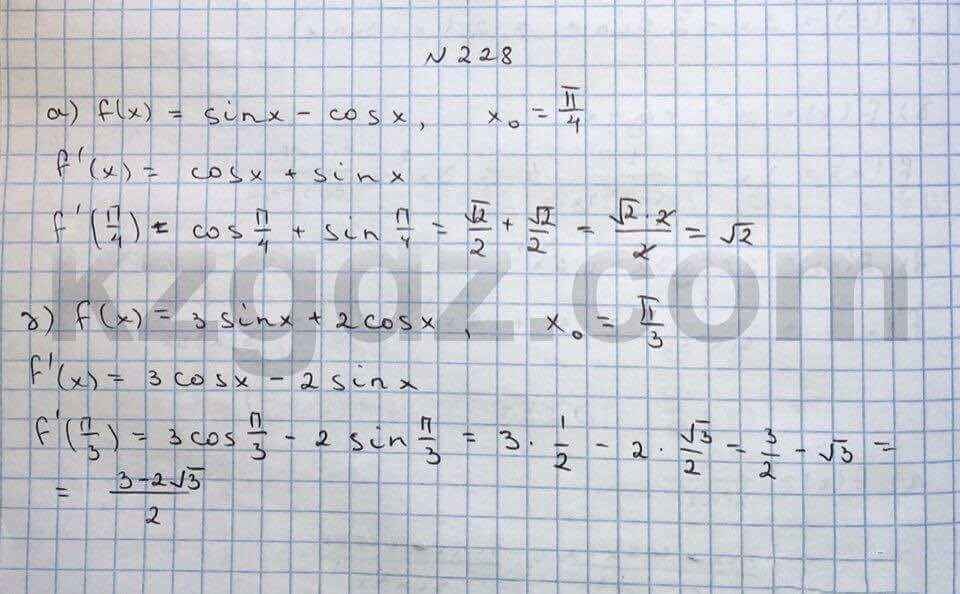 N 228
а) f(x) = sinx - cosx, x₀ = π/4
f'(x) = cosx + sinx
f'(π/4) = cos π/4 + sin π/4 = √2/2 + √2/2 = √2·2/2 = √2
kzgdz.com
г) f(x) = 3 sinx + 2 cosx, x₀ = π/3
f'(x) = 3 cosx - 2 sinx
f'(π/3) = 3 cos π/3 - 2 sin π/3 = 3 · 1/2 - 2 · √3/2 = 3/2 - √3 =
= 3-2√3/2